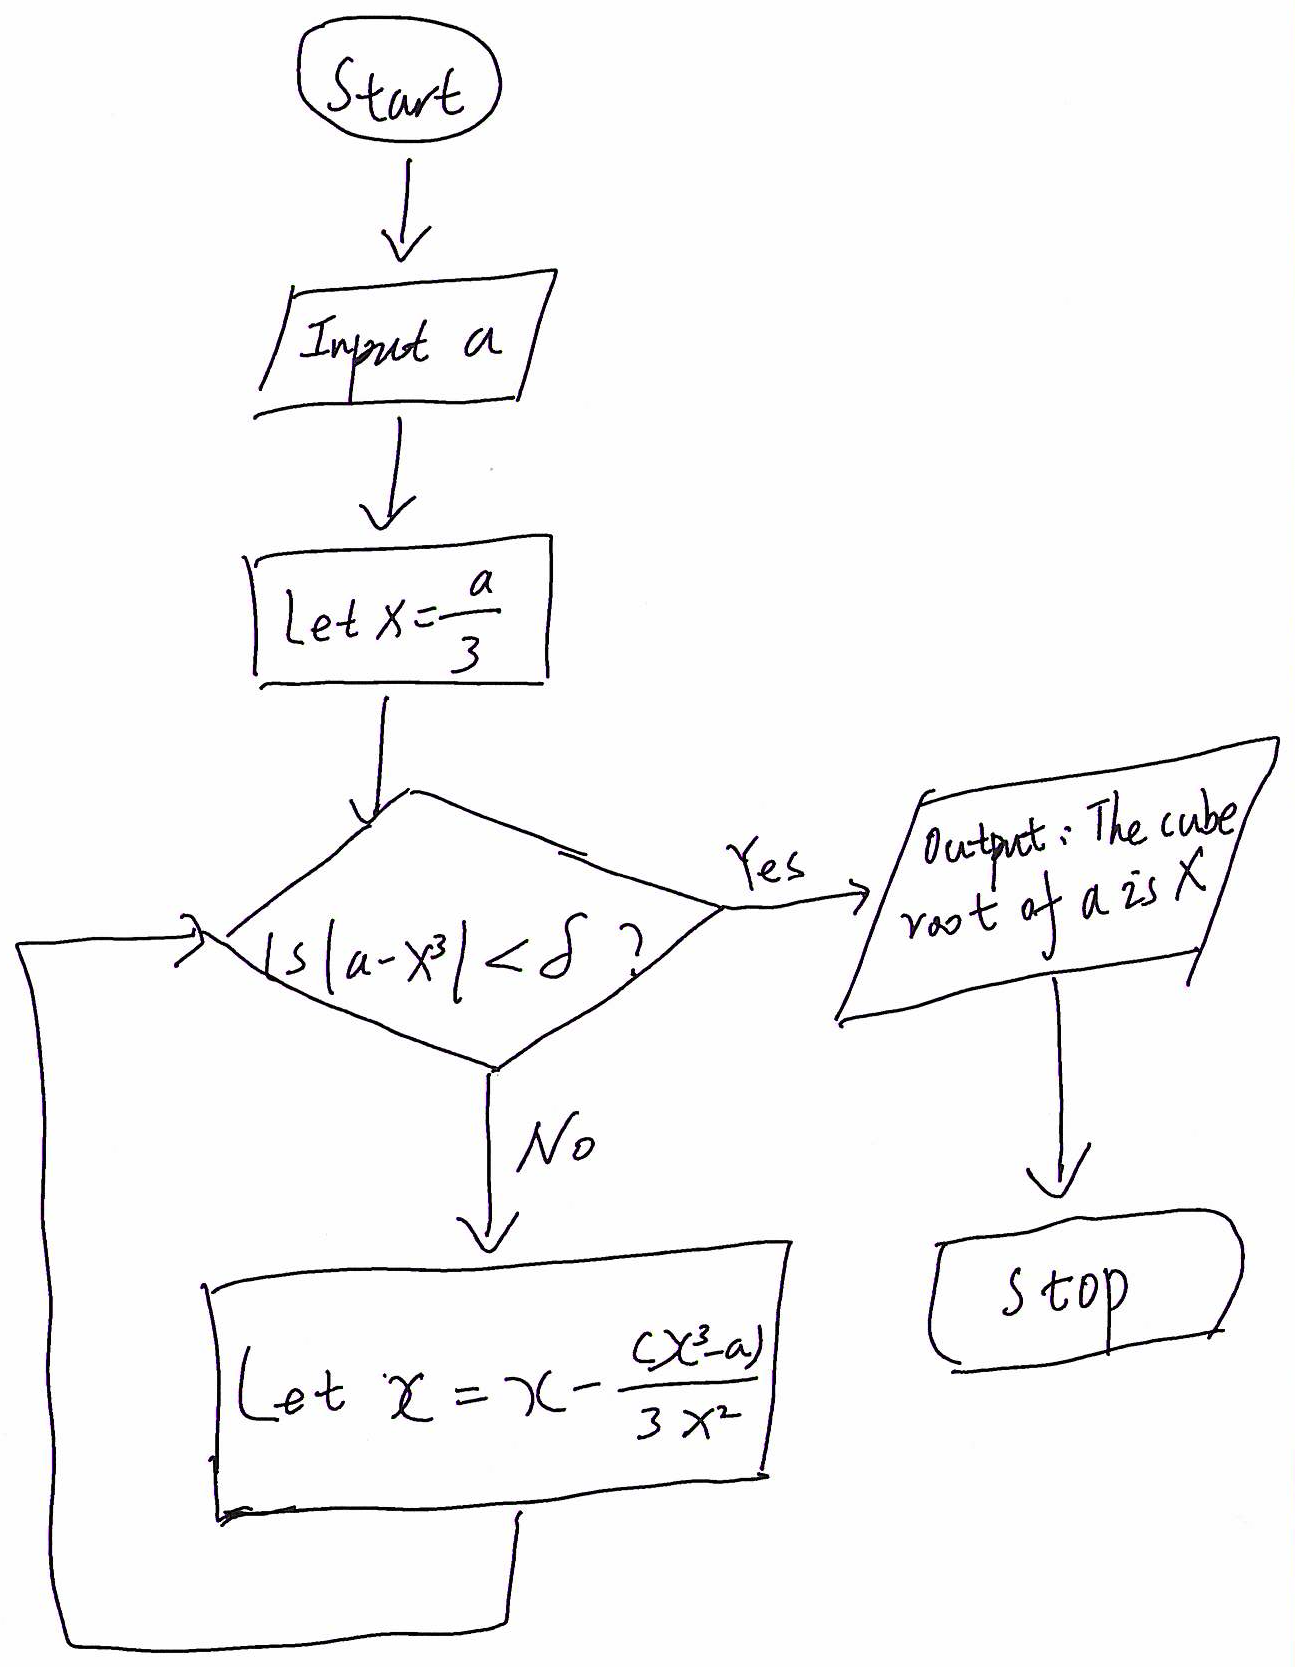 Start
Input a
Let x = a/3
Is |a-x³| < δ ?
Yes
Output: The cube
root of a is X
No
Stop
Let x = x - (x³-a)/3x²